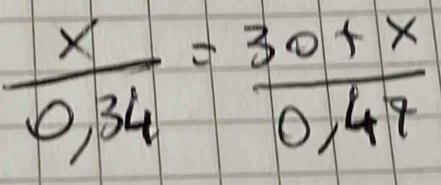 x/0,34 = 30+x/0,48